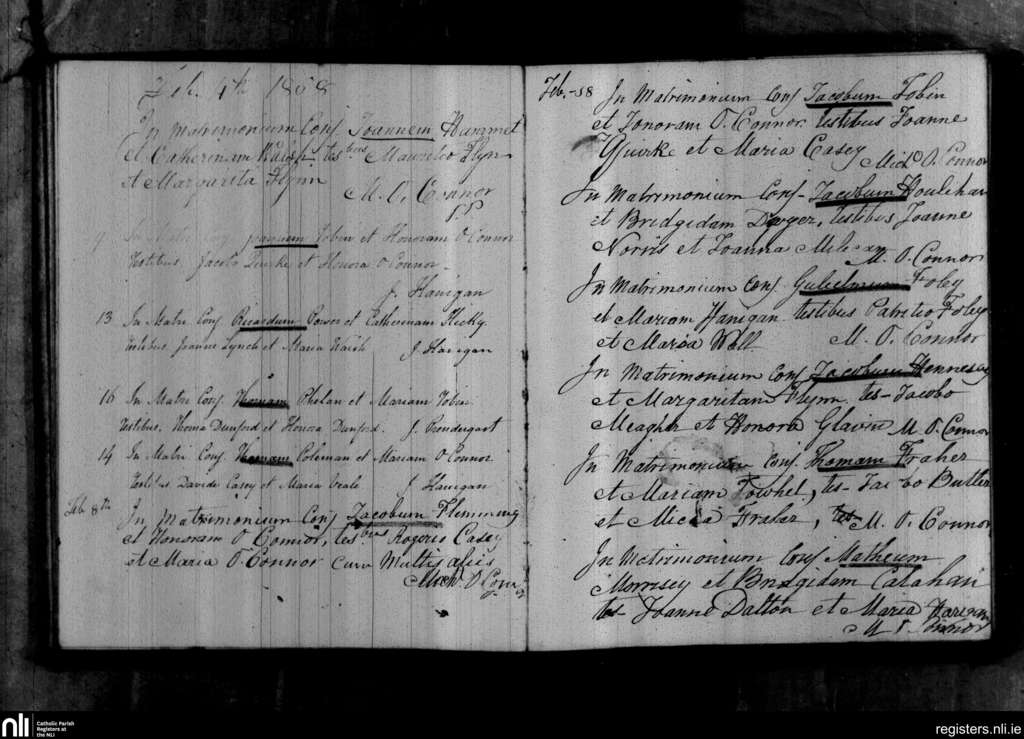 Feb. 4th 1858
In Matrimonium Conj Joannem Hammet
et Catherinam Walsh tesbus Mauritio Flyn
et Margarita Flynn
M. O. Connor
P.P.
9 In Matri Conj Joannem Tobin et Honoram O Connor
Testibus Jacobo Quirke et Honora O Connor
J. Hanigan
13 In Matri Conj Ricardum Power et Catherinam Hicky
testibus Joanne Lynch et Maria Walsh J Hanigan
16 In Matri Conj Thomam Phelan et Mariam Tobin
testibus Thoma Dunford et Honora Dunford. J. Prendergast
14 In Matri Conj Thomam Coleman et Mariam O Connor
Davide Casey et Maria J Hanigan
Feb 8th In Matrimonium Conj Jacobum Flemming
et Honoram O Connor, tesbus Rogerio Casey
et Maria O. Connor cum Multis aliis
O Con
Feb.-58 In Matrimonium Conj Jacobum Tobin
et Honoram O. Connor testibus Joanne
Quirke et Maria Casey Micl O. Connor
In Matrimonium Conj- Jacobum Houlihan
et Bridgidam Dwyer, testibus Joanne
Norris et Joanna
M. O. Connor
In Matrimonium Conj Gulielmum Foley
et Mariam Hanigan testibus Patritio Foley
et Maria Wall M. O. Connor
In Matrimonium Conj Jacobum Hennesey
et Margaritam Flynn tes- Jacobo
Meagher et Honora Glavin M. O. Connor
In Matrimonium Conj Thomam Fraher
et Mariam tes- Jacobo Butler
et Fraher, M. O. Connor
In Matrimonium Conj Matheum
Morrisey et Bridgidam Calahan
tes- Joanne Dalton et Maria
M O Connor
nli Catholic Parish
Registers at
the NLI
registers.nli.ie